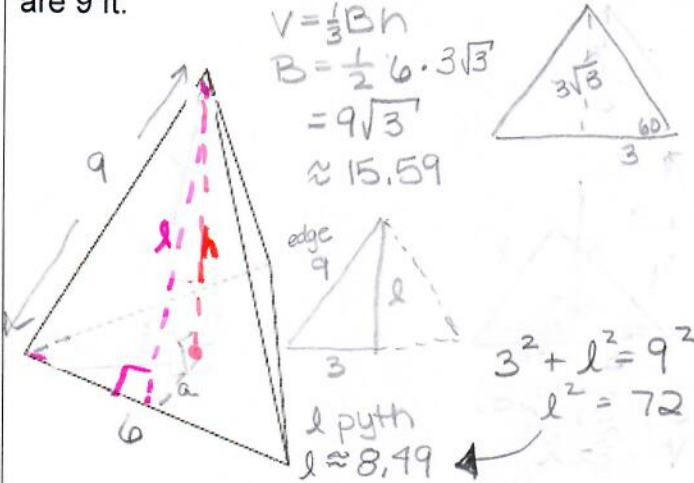 are 9 ft.
V = 1/3 Bh
B = 1/2 6 · 3√3
= 9√3
≈ 15.59
3√3
60
3
9
l
h
a
6
edge
9
l
3
3² + l² = 9²
l² = 72
l pyth
l ≈ 8.49